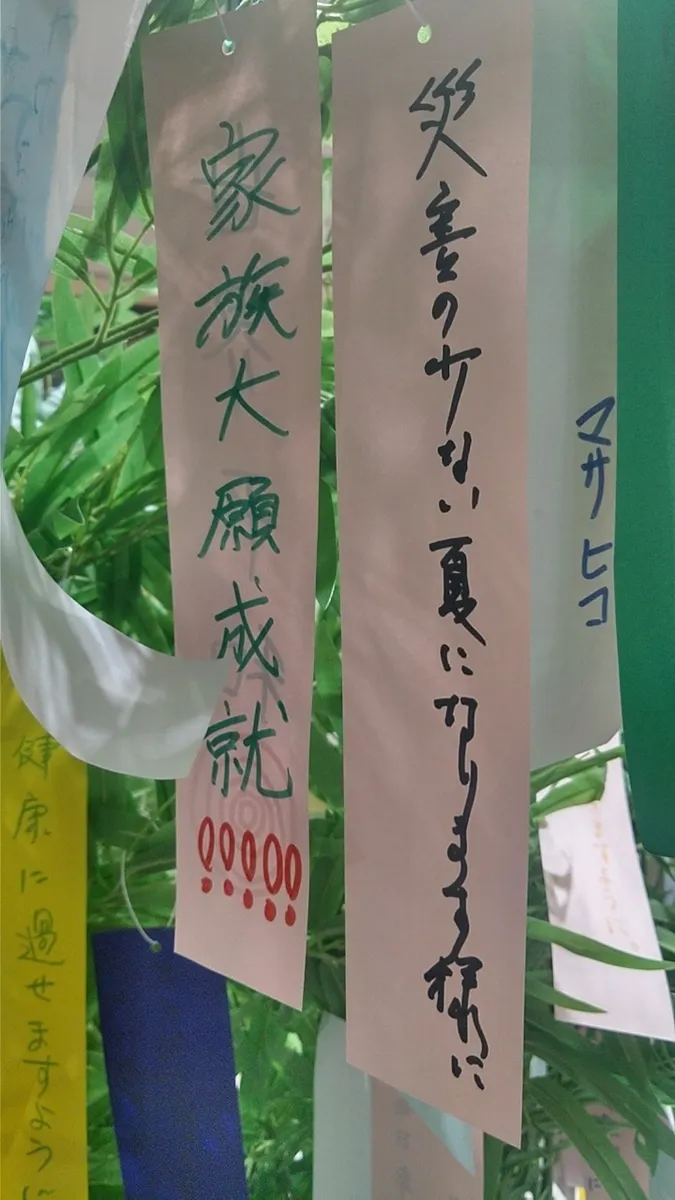 災害の少ない夏になります様に
家族大願成就!!!!!
マサヒコ
健康に過せますように